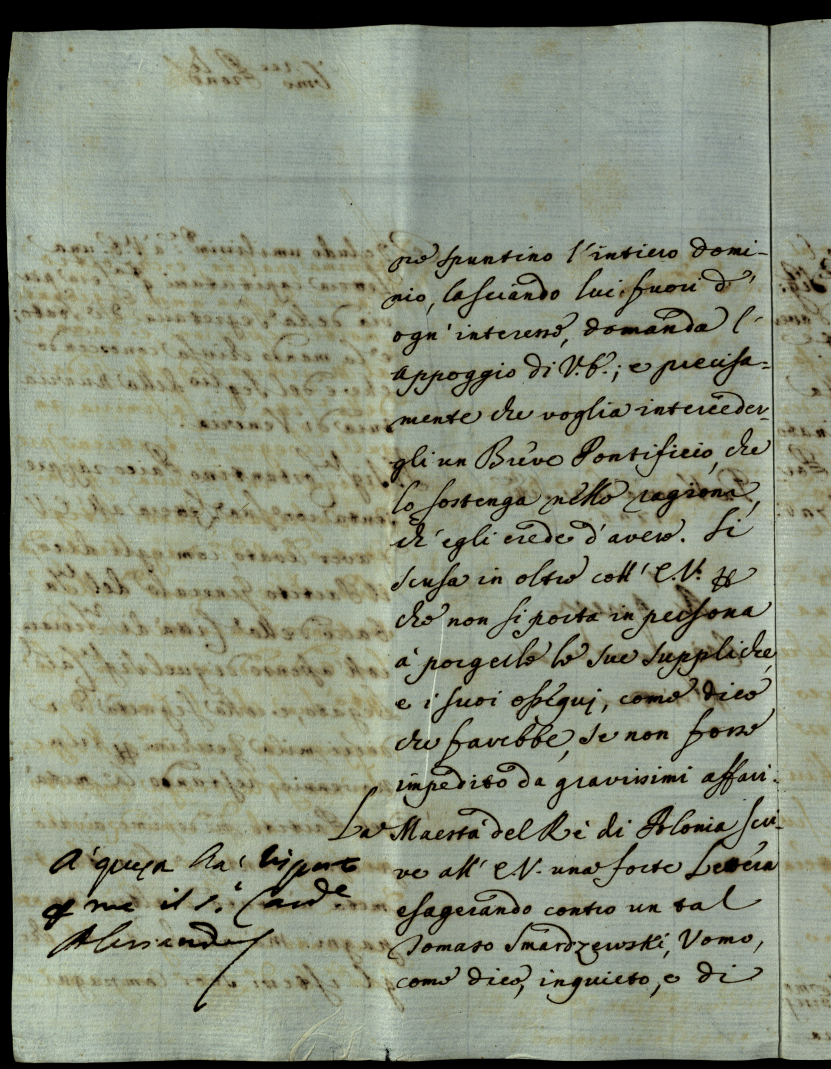 no spuntino l'intiero domi-
nio, lasciando lui fuori d'
ogn'interesse, domanda l'
appoggio di V.E.; e precisa=
mente che voglia interceder-
gli un Breve Pontificio, che
lo sostenga nelle ragioni,
ch'egli crede d'avere. Si
scusa in oltre coll'E.V. p
che non si porta in persona
a' porgerle le sue suppliche,
e i suoi ossequj, come dice
che farebbe, se non fosse
impedito da gravissimi affari.
La Maestà del Rè di Polonia scri-
ve all'E.V. una forte Lettera
esagerando contro un tal
Tomaso Smardzewski, Uomo,
come dice, inquieto, e di
A' questa ha' risposto
p me il S.r Card.e
Alessandro